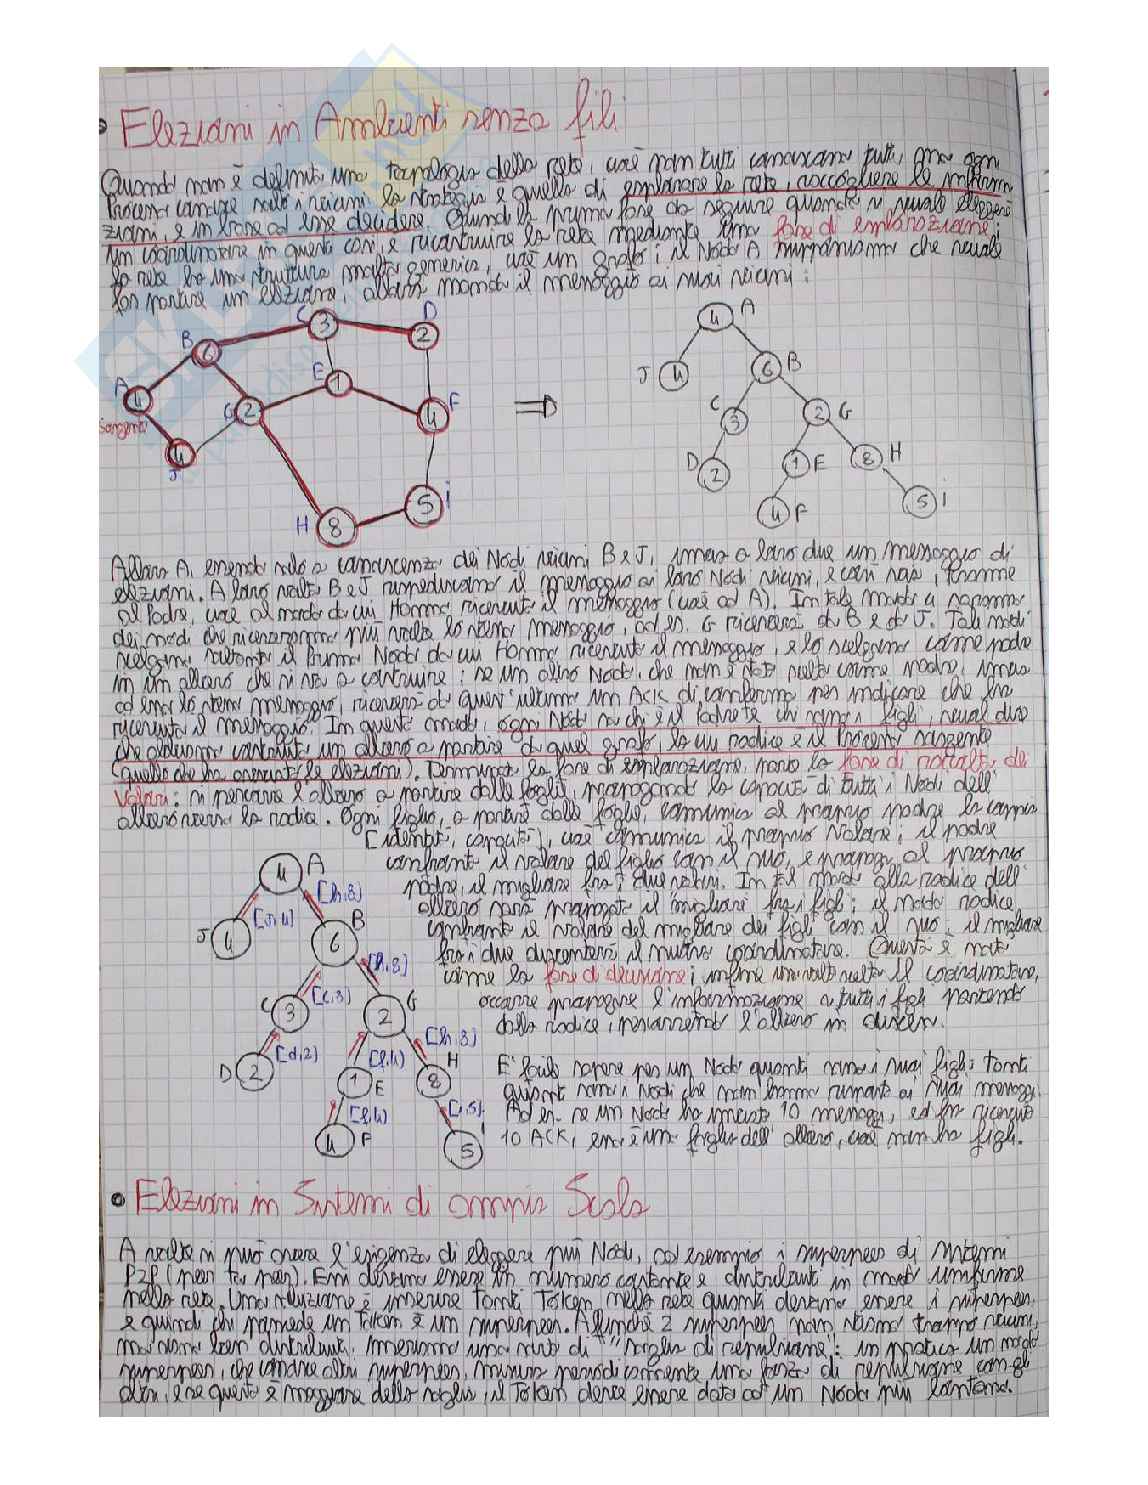 Elezioni in Ambienti senza fili
Quando non è definita una topologia della rete, cioè non tutti conoscono tutti, ma ogni
Processo conosce solo i vicini, la strategia è quella di esplorare la rete, raccogliere le inform
zioni, e in base ad esse decidere. Quindi la prima fase da seguire quando si vuole eleggere
un coordinatore in questi casi, è ricostruire la rete mediante una fase di esplorazione;
la rete ha una struttura molto generica, cioè un grafo; il Nodo A supponiamo che vuole
far partire un'elezione, allora manda il messaggio ai suoi vicini:
A 4 B 6 C 3 D 2 E 1 F 4 G 2 H 8 i 5 J 4
sorgente
A 4 J 4 B 6 C 3 G 2 D 2 E 1 H 8 F 4 i 5
Allora A, essendo solo a conoscenza dei Nodi vicini B e J, invia a loro due un messaggio di
elezioni. A loro volta B e J rispediscono il messaggio ai loro Nodi vicini, e così via, tranne
al Padre, cioè al nodo da cui hanno ricevuto il messaggio (cioè ad A). In tale modo ci saranno
dei nodi che riceveranno più volte lo stesso messaggio, ad es. G riceverà da B e da J. Tali nodi
scelgono soltanto il Primo Nodo da cui hanno ricevuto il messaggio, e lo scelgono come padre
in un albero che si va a costruire; se un altro Nodo, che non è stato scelto come padre, invia
ad esso lo stesso messaggio, riceverà da quest'ultimo un ACK di conferma per indicare che ha
ricevuto il messaggio. In questo modo, ogni Nodo sa chi è il Padre e chi sono i figli, vuol dire
che abbiamo costruito un albero a partire da quel grafo, la cui radice è il Processo sorgente
(quello che ha avviato le elezioni). Terminata la fase di esplorazione, parte la fase di raccolta dei
Valori: si percorre l'albero a partire dalle foglie, propagando la capacità di tutti i Nodi dell'
albero verso la radice. Ogni figlio, a partire dalle foglie, comunica al proprio padre la coppia
[identità, capacità], cioè comunica il proprio valore; il padre
confronta il valore del figlio con il suo, e propaga al proprio
padre, il migliore fra i due valori. In tal modo alla radice dell'
albero sarà propagato il migliore fra i figli; il nodo radice
confronta il valore del migliore dei figli con il suo: il migliore
fra i due diventerà il nuovo coordinatore. Questa è nota
come la fase di decisione; infine una volta scelto il coordinatore,
occorre propagare l'informazione a tutti i figli partendo
dalla radice, percorrendo l'albero in discesa.
A 4 [J,4] [h,8] J 4 B 6 [h,8] C 3 [c,3] G 2 [d,2] D 2 [f,4] [h,8] E 1 H 8 [f,4] [i,5] F 4 5
E' facile sapere per un Nodo quanti sono i suoi figli: tanti
quanti sono i Nodi che non hanno risposto ai suoi messaggi.
Ad es. se un Nodo ha inviato 10 messaggi, ed ha ricevuto
10 ACK, esso è una foglia dell'albero, cioè non ha figli.
Elezioni in Sistemi di ampia Scala
A volte si può avere l'esigenza di eleggere più Nodi, ad esempio i superpeer di sistemi
P2P (peer to peer). Essi devono essere in numero costante e distribuiti in modo uniforme
nella rete. Una soluzione è inserire tanti Token nella rete quanti devono essere i superpeer,
e quindi chi possiede un Token è un superpeer. Affinché 2 superpeer non stiano troppo vicini,
ma siano ben distribuiti, inseriamo una sorta di "soglia di repulsione": in pratica un nodo
superpeer, che conosce altri superpeer, misura periodicamente una forza di repulsione con gli
altri, e se questa è maggiore della soglia, il Token deve essere dato ad un Nodo più lontano.